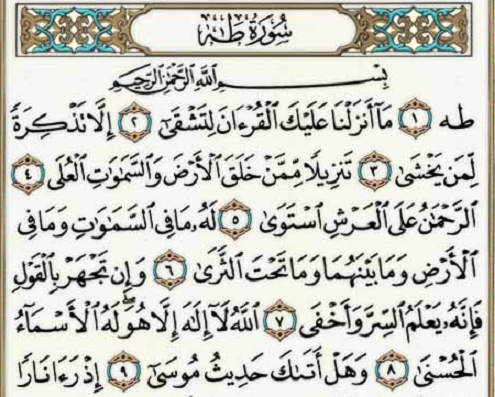 سُورَةُ طٰهٰ
بِسْمِ اللَّهِ الرَّحْمَٰنِ الرَّحِيمِ
طه ١ مَا أَنزَلْنَا عَلَيْكَ الْقُرْءَانَ لِتَشْقَىٰ ٢ إِلَّا تَذْكِرَةً
لِّمَن يَخْشَىٰ ٣ تَنزِيلًا مِّمَّنْ خَلَقَ الْأَرْضَ وَالسَّمَٰوَٰتِ الْعُلَى ٤
الرَّحْمَٰنُ عَلَى الْعَرْشِ اسْتَوَىٰ ٥ لَهُۥ مَا فِي السَّمَٰوَٰتِ وَمَا فِي
الْأَرْضِ وَمَا بَيْنَهُمَا وَمَا تَحْتَ الثَّرَىٰ ٦ وَإِن تَجْهَرْ بِالْقَوْلِ
فَإِنَّهُۥ يَعْلَمُ السِّرَّ وَأَخْفَى ٧ اللَّهُ لَا إِلَٰهَ إِلَّا هُوَ ۖ لَهُ الْأَسْمَاءُ
الْحُسْنَىٰ ٨ وَهَلْ أَتَىٰكَ حَدِيثُ مُوسَىٰ ٩ إِذْ رَءَا نَارًا